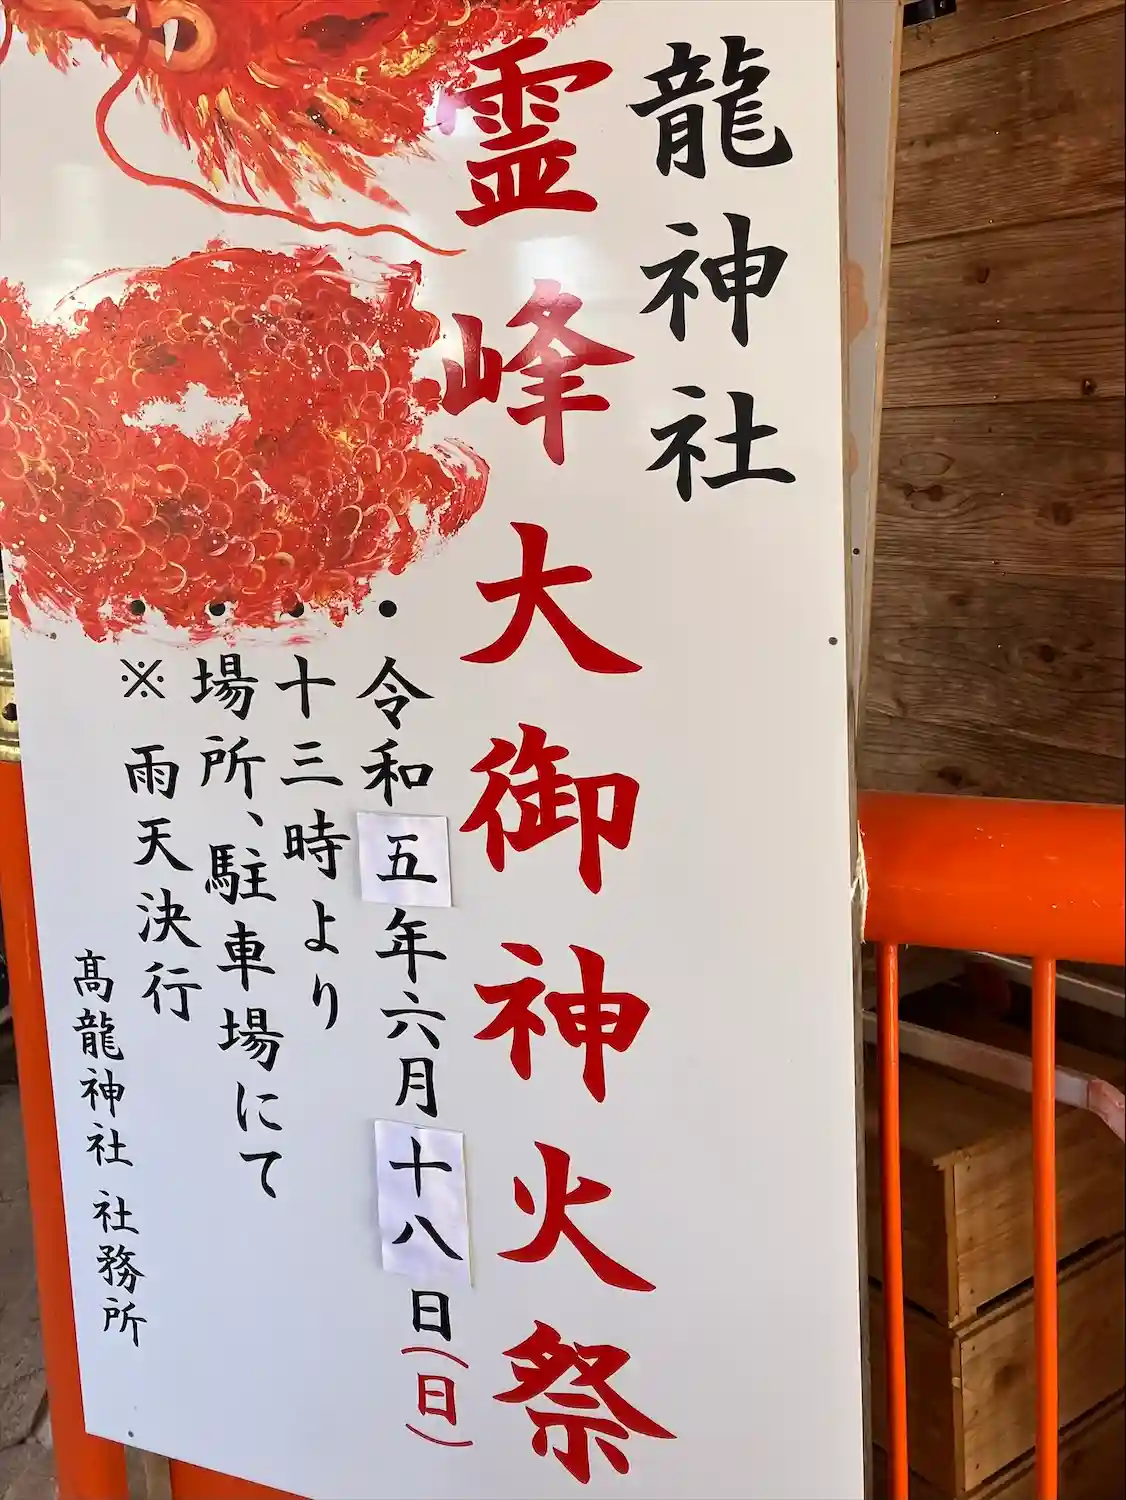 龍神社
霊峰大御神火祭
・令和五年六月十八日(日)
・十三時より
・場所、駐車場にて
・※雨天決行
髙龍神社 社務所